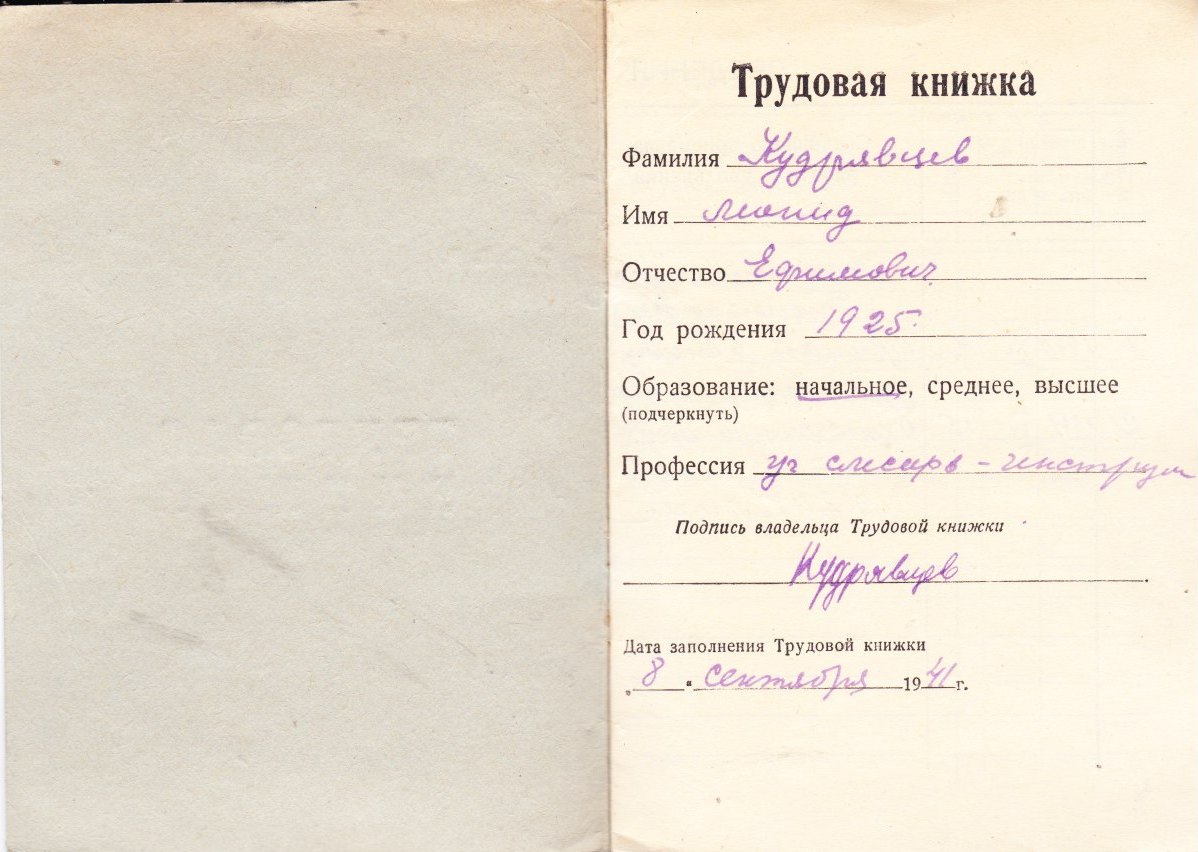 Трудовая книжка
Фамилия Кудрявцев
Имя Леонид
Отчество Ефимович
Год рождения 1925.
Образование: начальное, среднее, высшее
(подчеркнуть)
Профессия уч слесарь - инструм
Подпись владельца Трудовой книжки
Кудрявцев
Дата заполнения Трудовой книжки
„8“ Сентября 1941 г.